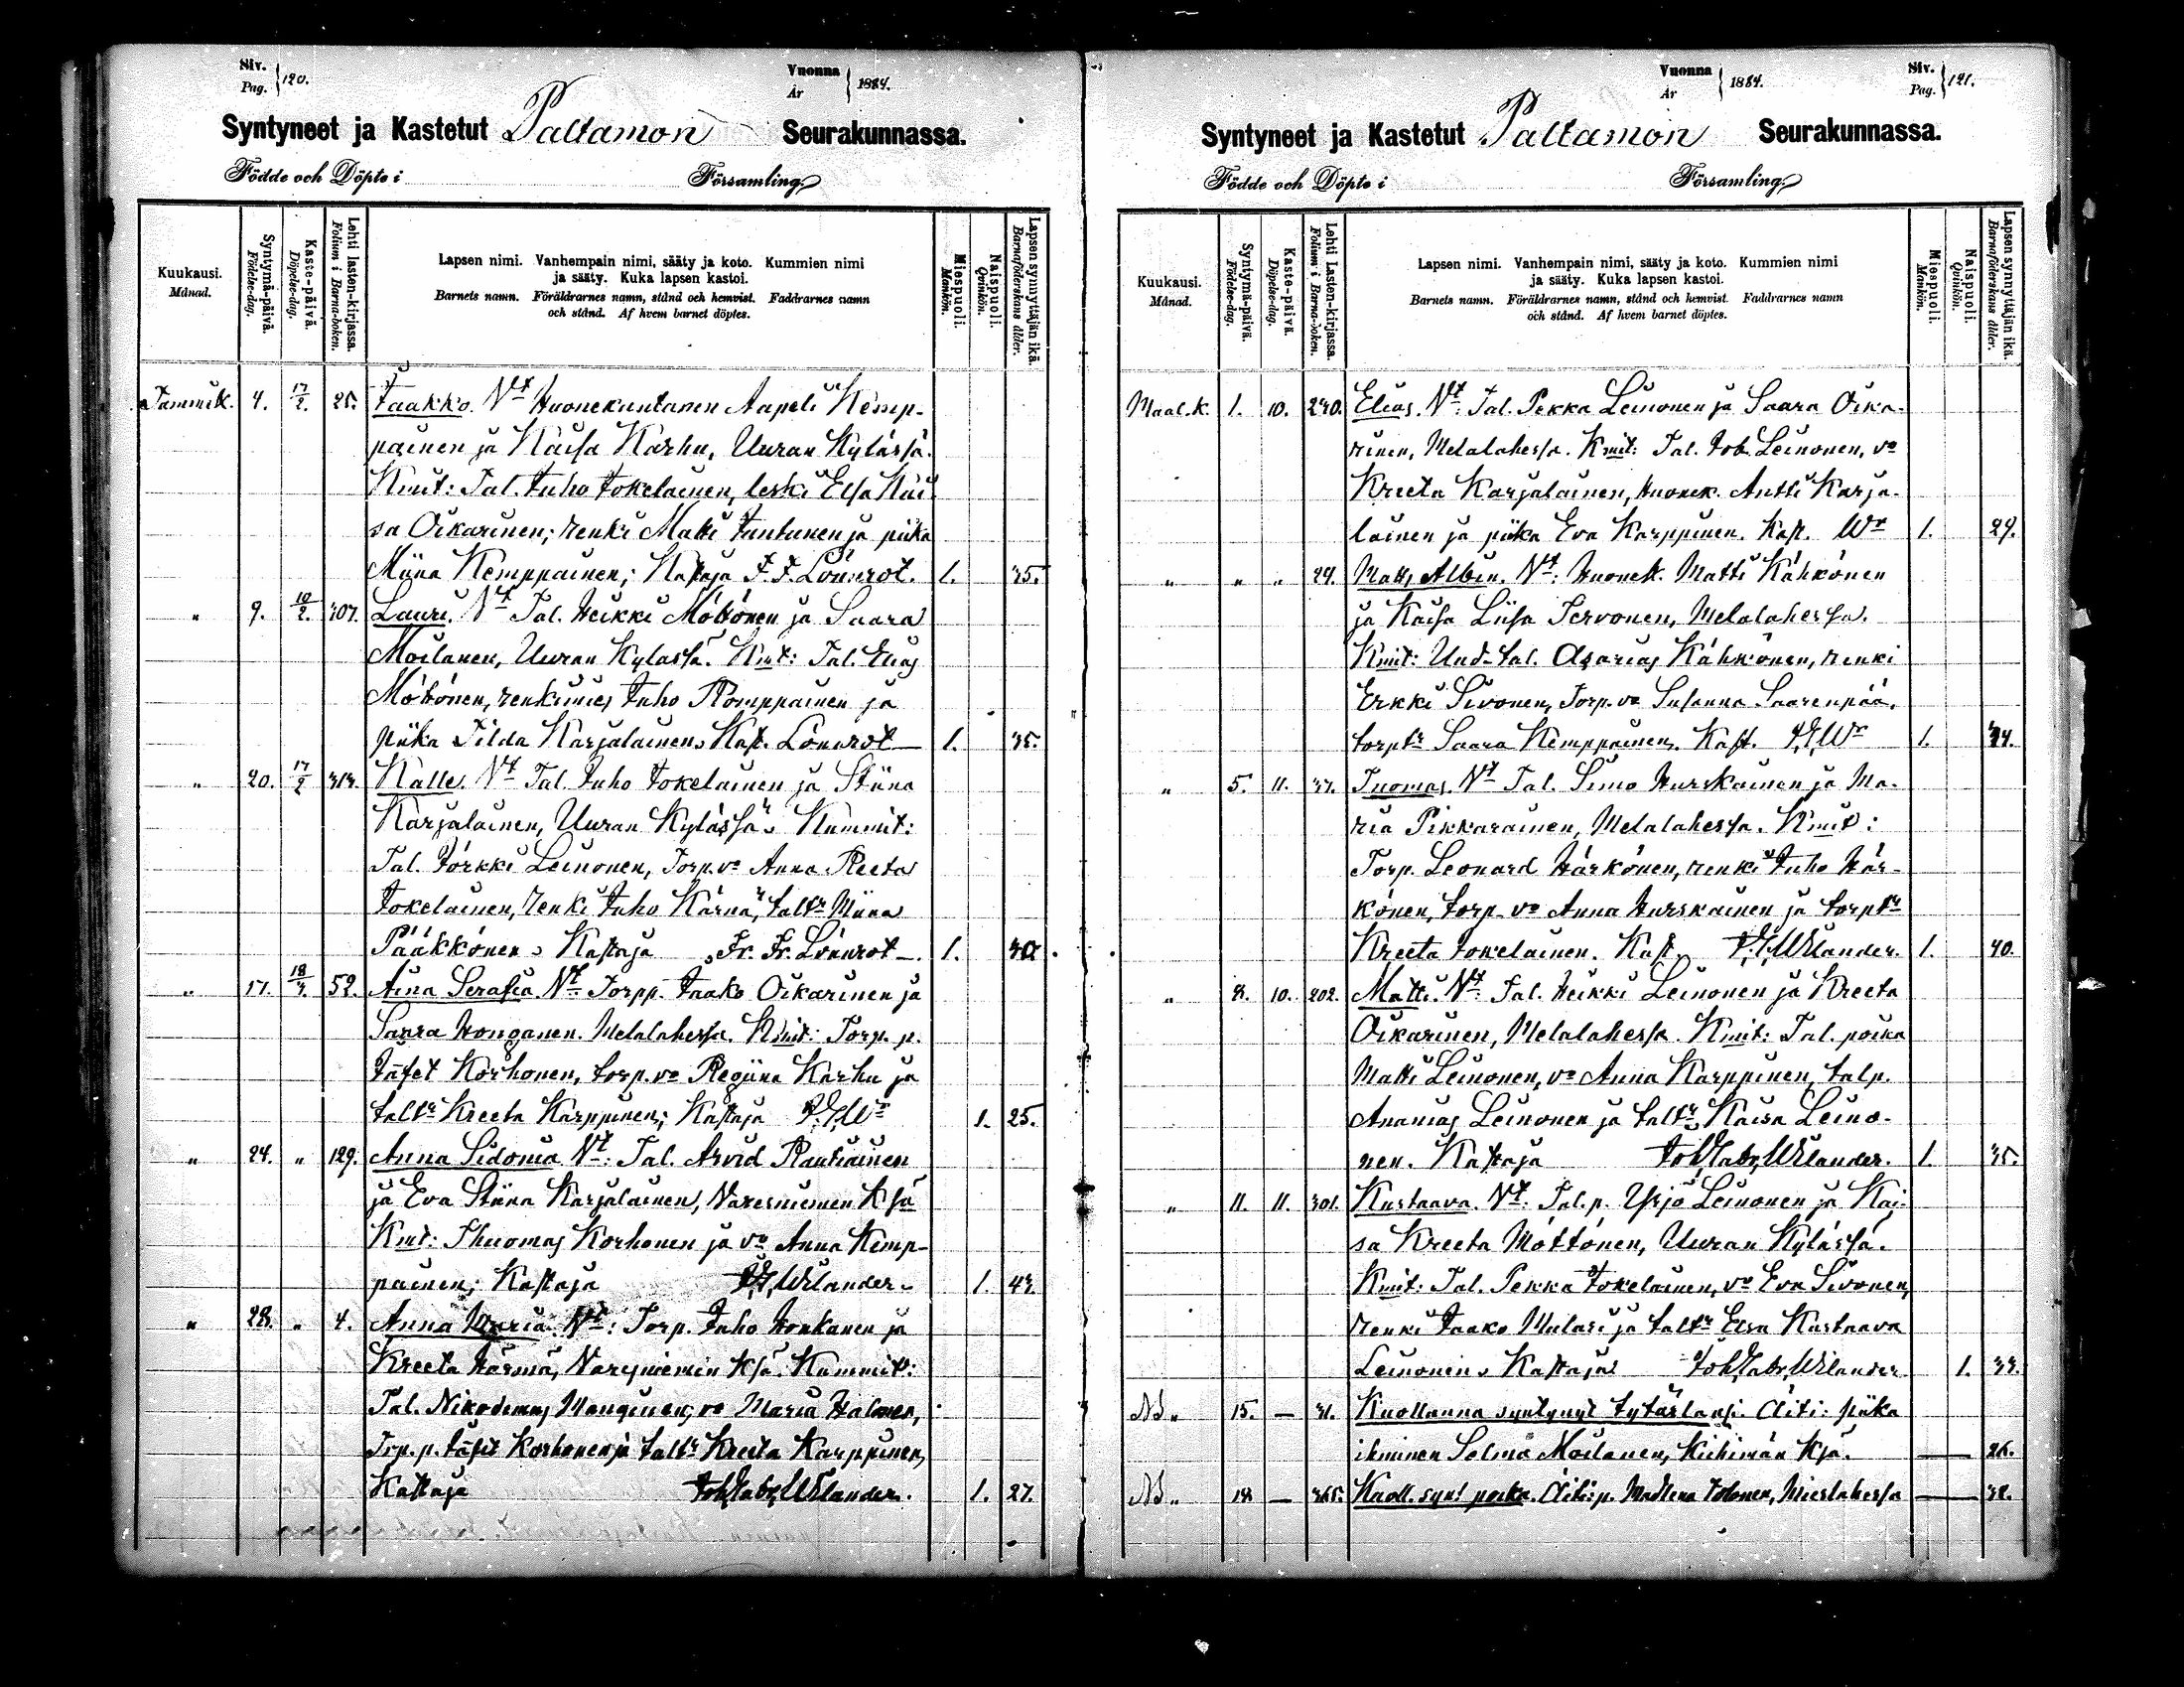 Siv. Pag. 120.
Vuonna År 1884.
Syntyneet ja Kastetut Paltamon Seurakunnassa.
Födde och Döpte i Församling.
Kuukausi. Månad.
Syntymä-päivä. Födelse-dag.
Kaste-päivä. Döpelse-dag.
Lehti lasten-kirjassa. Folium i Barna-boken.
Lapsen nimi. Vanhempain nimi, sääty ja koto. Kummien nimi
ja sääty. Kuka lapsen kastoi.
Barnets namn. Föräldrarnes namn, stånd och hemvist. Faddrarnes namn
och stånd. Af hvem barnet döptes.
Miespuoli. Mankön.
Naispuoli. Qvinkön.
Lapsen synnyttäjän ikä. Barnaföderskans ålder.
Tammik. 4. 17/2. 25. Jaakko. Vt Huonekuntanen Aapeli Kemp-
painen ja Kaisa Karhu, Uuran Kylässä.
Kmit: Tal. Juho Jokelainen, leski Elsa Kai
sa Oikarinen; renki Matti Juntunen ja piika
Miina Kemppainen; Kastaja F. F. Lönnrot. 1. 35.
" 9. 10/2. 307. Lauri. Vt Tal. Heikki Möttönen ja Saara
Moilanen, Uuran Kylässä. Kmt: Tal. Elias
Möttönen, renkimies Juho Romppainen ja
piika Tilda Karjalainen. Kast. Lönnrot 1. 35.
" 20. 17/2 313. Kalle. Vt Tal. Juho Jokelainen ja Stiina
Karjalainen, Uuran Kylässä. Kummit:
Tal. Yörkki Leinonen, Torp. vo Anna Reeta
Jokelainen, renki Juho Kärnä, taltr Miina
Pääkkönen. Kastaja Fr. Fr. Lönnrot. 1. 30.
" 17. 18/3. 52. Aina Serafia. Vt: Torpp. Jaako Oikarinen ja
Saara Honganen. Melalahessa. Kmit: Torp. p.
Jafet Korhonen, torp. vo Regiina Karhu ja
taltr Kreeta Karppinen; Kastaja J. G. Wr 1. 25.
" 24. " 129. Anna Sidonia. Vt: Tal. Arvid Rautiainen
ja Eva Stiina Karjalainen, Varesniemen Ksä
Kmt: Thuomas Korhonen ja vo Anna Kemp-
painen; Kastaja J. G. Wilander. 1. 43.
" 28. " 4. Anna Maria. Vt: Torp. Juho Honkanen ja
Kreeta Härmä, Varesniemin Ksä. Kummit:
Tal. Nikodemus Manginen, vo Maria Halonen,
Trp. p. Jafet Korhonen ja taltr Kreeta Karppinen,
Kastaja Joh. Gabr. Wilander. 1. 27.
Vuonna År 1884.
Siv. Pag. 121.
Syntyneet ja Kastetut Paltamon Seurakunnassa.
Födde och Döpte i Församling.
Kuukausi. Månad.
Syntymä-päivä. Födelse-dag.
Kaste-päivä. Döpelse-dag.
Lehti Lasten-kirjassa. Folium i Barna-boken.
Lapsen nimi. Vanhempain nimi, sääty ja koto. Kummien nimi
ja sääty. Kuka lapsen kastoi.
Barnets namn. Föräldrarnes namn, stånd och hemvist. Faddrarnes namn
och stånd. Af hvem barnet döptes.
Miespuoli. Mankön.
Naispuoli. Qvinkön.
Lapsen synnyttäjän ikä. Barnaföderskans ålder.
Maal.k. 1. 10. 230. Elias. Vt: Tal. Pekka Leinonen ja Saara Oika-
rinen, Melalahessa. Kmit: Tal. Joh. Leinonen, vo
Kreeta Karjalainen, Huonek. Antti Karja-
lainen ja piika Eva Karppinen. Kast. Wr 1. 29.
" " " 24. Matts Albin. Vt: Huonek. Matti Kähkönen
ja Kaisa Liisa Tervonen, Melalahessa.
Kmit: Uud-tal. Asarias Kähkönen, renki
Erkki Sivonen, Torp. vo Susanna Saarenpää,
torptr Saara Kemppainen. Kast. J. G. Wr 1. 34.
" 5. 11. 37. Tuomas. Vt Tal. Simo Hurskainen ja Ma-
ria Pikkarainen, Melalahessa. Kmit:
Torp. Leonard Härkönen, renki Juho Här-
könen, torp. vo Anna Hurskainen ja torptr
Kreeta Jokelainen. Kast. J. G. Wilander. 1. 40.
" 8. 10. 202. Matti. Vt: Tal. Heikki Leinonen ja Kreeta
Oikarinen, Melalahessa. Kmit: Tal. poika
Matti Leinonen, vo Anna Karppinen, talp.
Ananias Leinonen ja taltr Kaisa Leino-
nen. Kastaja Joh. Gabr. Wilander. 1. 35.
" 11. 11. 301. Kustaava. Vt: Tal. p. Yrjö Leinonen ja Kai-
sa Kreeta Möttönen, Uuran Kylässä.
Kmit: Tal. Pekka Jokelainen, vo Eva Sivonen,
renki Jaako Mulari ja taltr Elsa Kustaava
Leinonen. Kastaja Joh. Gabr. Wilander 1. 33.
" 15. — 31. Kuollunna syntynyt tytärlapsi. Äiti: piika
ihminen Selma Moilanen, Kiehimän Ksä. — 26.
" 18 — 365. Kuoll. synt poika. Äiti: p. Madlena Tolonen, Mieslahessa — 38.